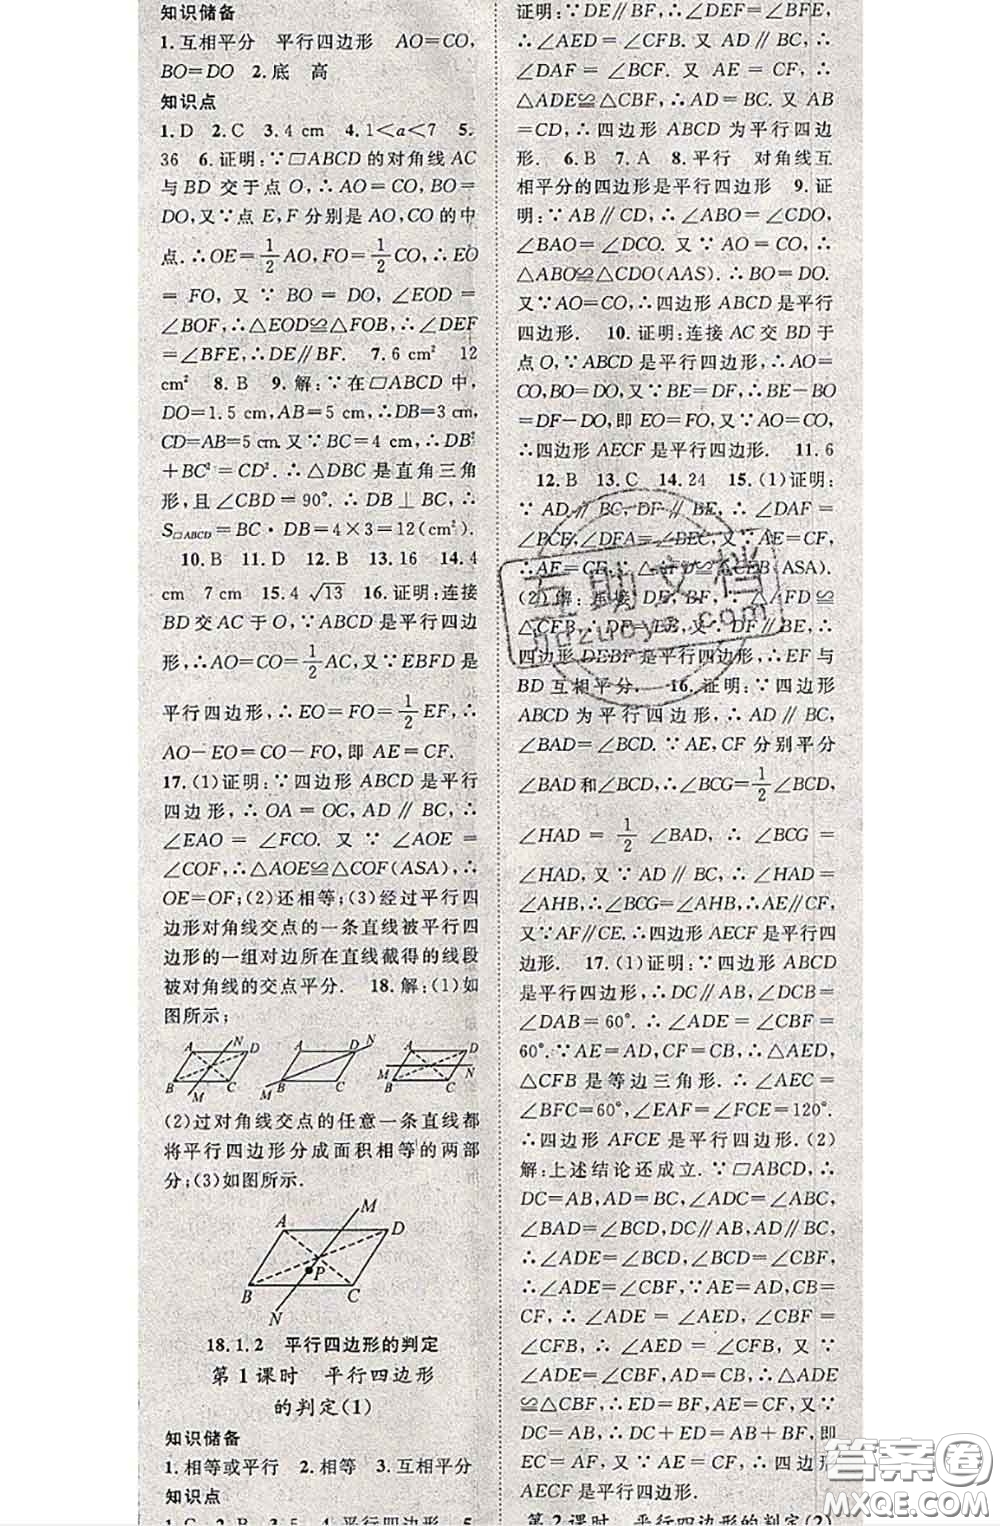 知识储备
1.互相平分 平行四边形 AO=CO,
BO=DO 2.底 高
知识点
1.D 2.C 3.4 cm 4.1<a<7 5.
36 6.证明:∵□ABCD的对角线AC
与BD交于点O,∴AO=CO,BO=
DO,又∵点E,F分别是AO,CO的中
点.∴OE=1/2AO,FO=1/2CO,∴EO
=FO,又∵BO=DO,∠EOD=
∠BOF,∴△EOD≌△FOB,∴∠DEF
=∠BFE,∴DE∥BF. 7.6 cm² 12
cm² 8.B 9.解:∵在□ABCD中,
DO=1.5 cm,AB=5 cm,∴DB=3 cm,
CD=AB=5 cm.又∵BC=4 cm,∴DB²
+BC²=CD².∴△DBC是直角三角
形,且∠CBD=90°.∴DB⊥BC,∴
S□ABCD=BC·DB=4×3=12(cm²).
10.B 11.D 12.B 13.16 14.4
cm 7 cm 15.4√13 16.证明:连接
BD交AC于O,∵ABCD是平行四边
形,∴AO=CO=1/2AC,又∵EBFD是
平行四边形,∴EO=FO=1/2EF,∴
AO-EO=CO-FO,即AE=CF.
17.(1)证明:∵四边形ABCD是平行
四边形,∴OA=OC,AD∥BC,∴
∠EAO=∠FCO.又∵∠AOE=
∠COF,∴△AOE≌△COF(ASA),∴
OE=OF;(2)还相等;(3)经过平行四
边形对角线交点的一条直线被平行四
边形的一组对边所在直线截得的线段
被对角线的交点平分. 18.解:(1)如
图所示;
A N D B M C
A D N M B C
A D M N B C
(2)过对角线交点的任意一条直线都
将平行四边形分成面积相等的两部
分;(3)如图所示.
M
A D
P
B C
N
18.1.2 平行四边形的判定
第1课时 平行四边形
的判定(1)
知识储备
1.相等或平行 2.相等 3.互相平分
知识点
1.C 2.B 3.平行四边形 4.平行 5.
证明:∵DE∥BF,∴∠DEF=∠BFE,
∴∠AED=∠CFB.又AD∥BC,∴
∠DAF=∠BCF.又AE=CF,∴
△ADE≌△CBF,∴AD=BC.又AB
=CD,∴四边形ABCD为平行四边
形. 6.B 7.A 8.平行 对角线互
相平分的四边形是平行四边形 9.证
明:∵AB∥CD,∴∠ABO=∠CDO,
∠BAO=∠DCO.又∵AO=CO,∴
△ABO≌△CDO(AAS).∴BO=DO.
又∵AO=CO,∴四边形ABCD是平行
四边形. 10.证明:连接AC交BD于
点O,∵ABCD是平行四边形,∴AO=
CO,BO=DO,又∵BE=DF,∴BE-BO
=DF-DO,即EO=FO,又∵AO=CO,
∴四边形AECF是平行四边形. 11.6
12.B 13.C 14.24 15.(1)证明:
∵AD∥BC,DF∥BE,∴∠DAF=
∠BCE,∠DFA=∠BEC.又∵AE=CF,
∴AF=CE.∴△AFD≌△CEB(ASA).
(2)解:连接DE,BF,∵△AFD≌
△CEB,∴DF=EB,又∵DF∥BE,∴
四边形DEBF是平行四边形,∴EF与
BD互相平分. 16.证明:∵四边形
ABCD为平行四边形,∴AD∥BC,
∠BAD=∠BCD.∵AE,CF分别平分
∠BAD和∠BCD,∴∠BCG=1/2∠BCD,
∠HAD=1/2∠BAD,∴∠BCG=
∠HAD,又∵AD∥BC,∴∠HAD=
∠AHB,∴∠BCG=∠AHB,∴AE∥CF,
又∵AF∥CE.∴四边形AECF是平行四
边形. 17.(1)证明:∵四边形ABCD
是平行四边形,∴DC∥AB,∠DCB=
∠DAB=60°.∴∠ADE=∠CBF=
60°.∵AE=AD,CF=CB,∴△AED,
△CFB是等边三角形.∴∠AEC=
∠BFC=60°,∠EAF=∠FCE=120°.
∴四边形AFCE是平行四边形.(2)
解:上述结论还成立.∵□ABCD,∴
DC=AB,AD=BC,∠ADC=∠ABC,
∠BAD=∠BCD,DC∥AB,AD∥BC,
∴∠ADE=∠BCD,∠CBF=∠BCD,
∴∠ADE=∠CBF,∵AE=AD,CB=
CF,∴∠ADE=∠AED,∠CBF=
∠CFB.∵∠ADE=∠CBF,∴△ADE
≌△CBF,∴ED=BF,AE=CF,又∵
DC=AB,∴DC+ED=AB+BF,即
EC=AF,又∵AE=CF,∴四边形
AECF是平行四边形.
第2课时 平行四边形的判定(2)
互助文档
huzuoye.com
答案圈
MXQE.COM